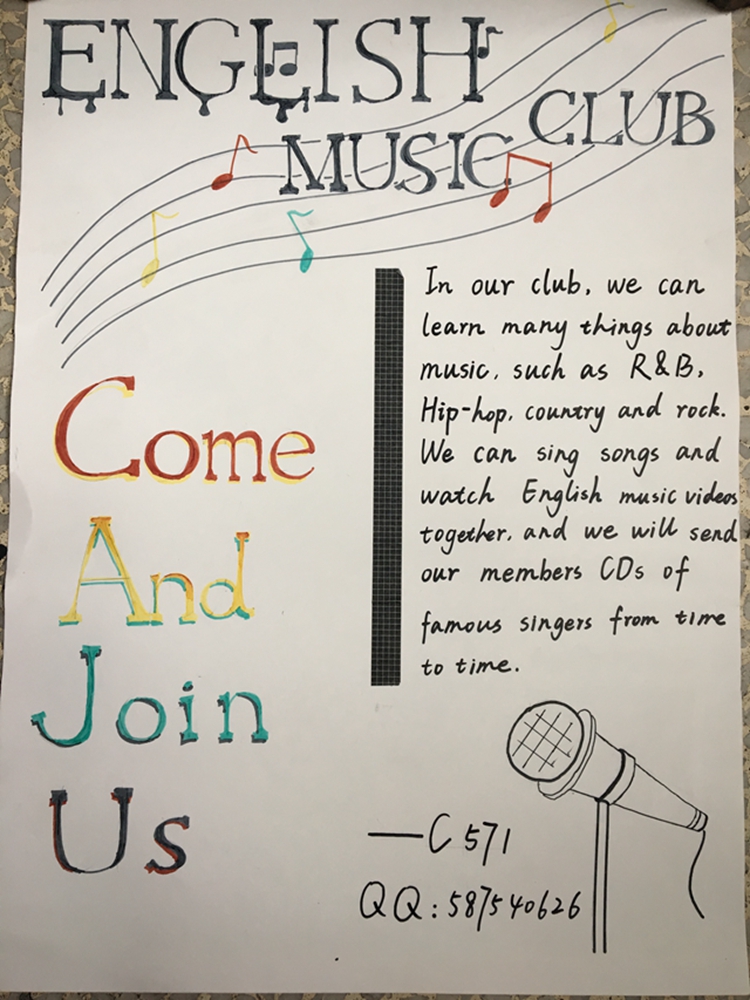 ENGLISH
MUSIC CLUB
Come
And
Join
Us
In our club, we can
learn many things about
music, such as R&B,
Hip-hop, country and rock.
We can sing songs and
watch English music videos
together, and we will send
our members CDs of
famous singers from time
to time.
—C 571
QQ: 587540626